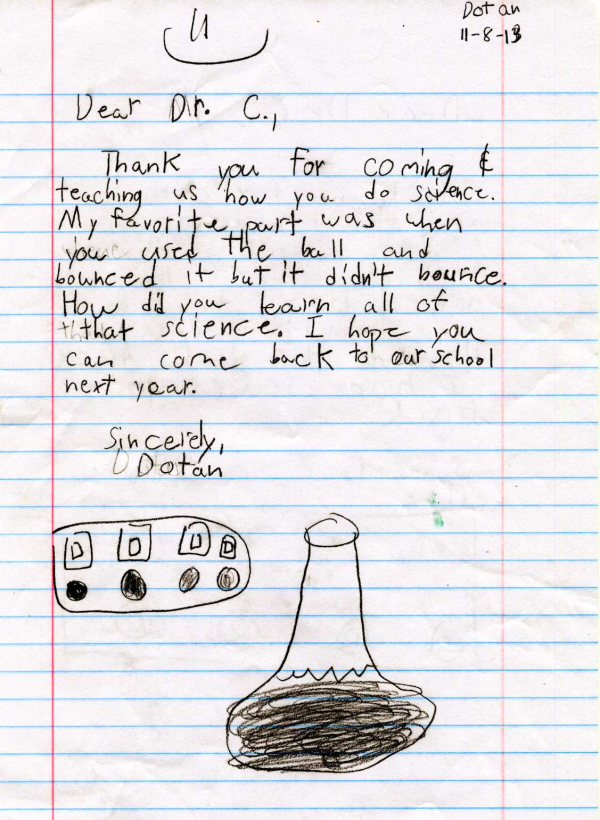 Dotan
11-8-13
Dear Dr. C.,
Thank you for coming &
teaching us how you do science.
My favorite part was when
you used the ball and
bounced it but it didn't bounce.
How did you learn all of
that science. I hope you
can come back to our school
next year.
Sincerely,
Dotan
D D D D